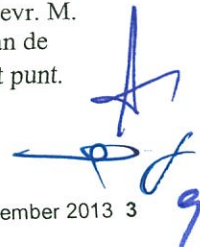 evr. M.
an de
t punt.
ember 2013 3